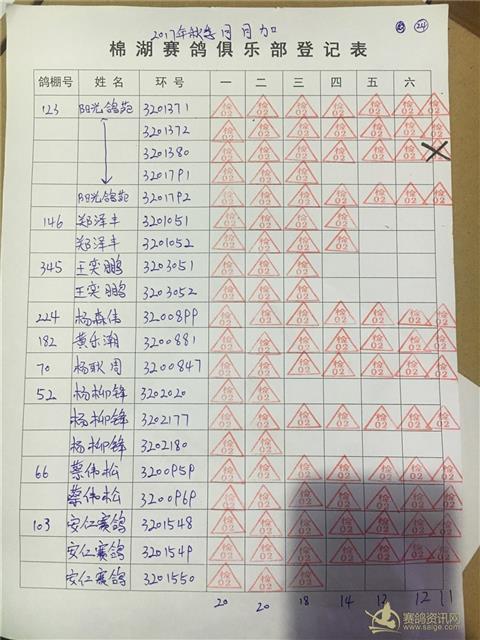 2017年秋季 月月加 24
棉湖赛鸽俱乐部登记表
鸽棚号 姓名 环号 一 二 三 四 五 六
123 阳光鸽苑 3201371 检02 检02 检02 检02 检02 检02 检02
3201372 检02 检02 检02 检02 检02 检02 检02
3201380 检02 检02 检02 检02 检02 检02
3201791 检02 检02 检02
阳光鸽苑 3201792 检02 检02 检02 检02 检02 检02 检02
146 郑泽丰 3201051 检02 检02 检02 检02
郑泽丰 3201052 检02 检02 检02 检02
345 王奕鹏 3203051 检02 检02 检02
王奕鹏 3203052 检02 检02 检02
224 杨森伟 3200899 检02 检02 检02 检02 检02 检02 检02
182 黄乐潮 3200881 检02 检02 检02 检02 检02 检02 检02
70 杨耿周 3200847 检02 检02 检02 检02 检02 检02 检02
52 杨柳锋 3202020 检02 检02
杨柳锋 3202177 检02 检02 检02 检02 检02 检02 检02
杨柳锋 3202180 检02 检02
66 蔡伟松 3200959 检02 检02 检02 检02 检02 检02 检02
蔡伟松 3200969 检02 检02 检02 检02 检02 检02 检02
103 安仁赛鸽 3201548 检02 检02 检02 检02 检02 检02 检02
安仁赛鸽 3201549 检02 检02 检02 检02 检02 检02 检02
安仁赛鸽 3201550 检02 检02 检02
20 20 18 14 12 12 11
赛鸽资讯网
www.saige.com